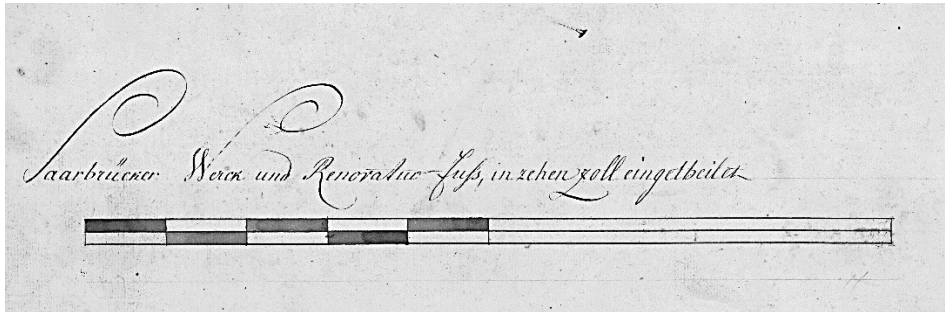 Saarbrücker Werck und Renovatur-Fuss, in zehen zoll eingetheilet